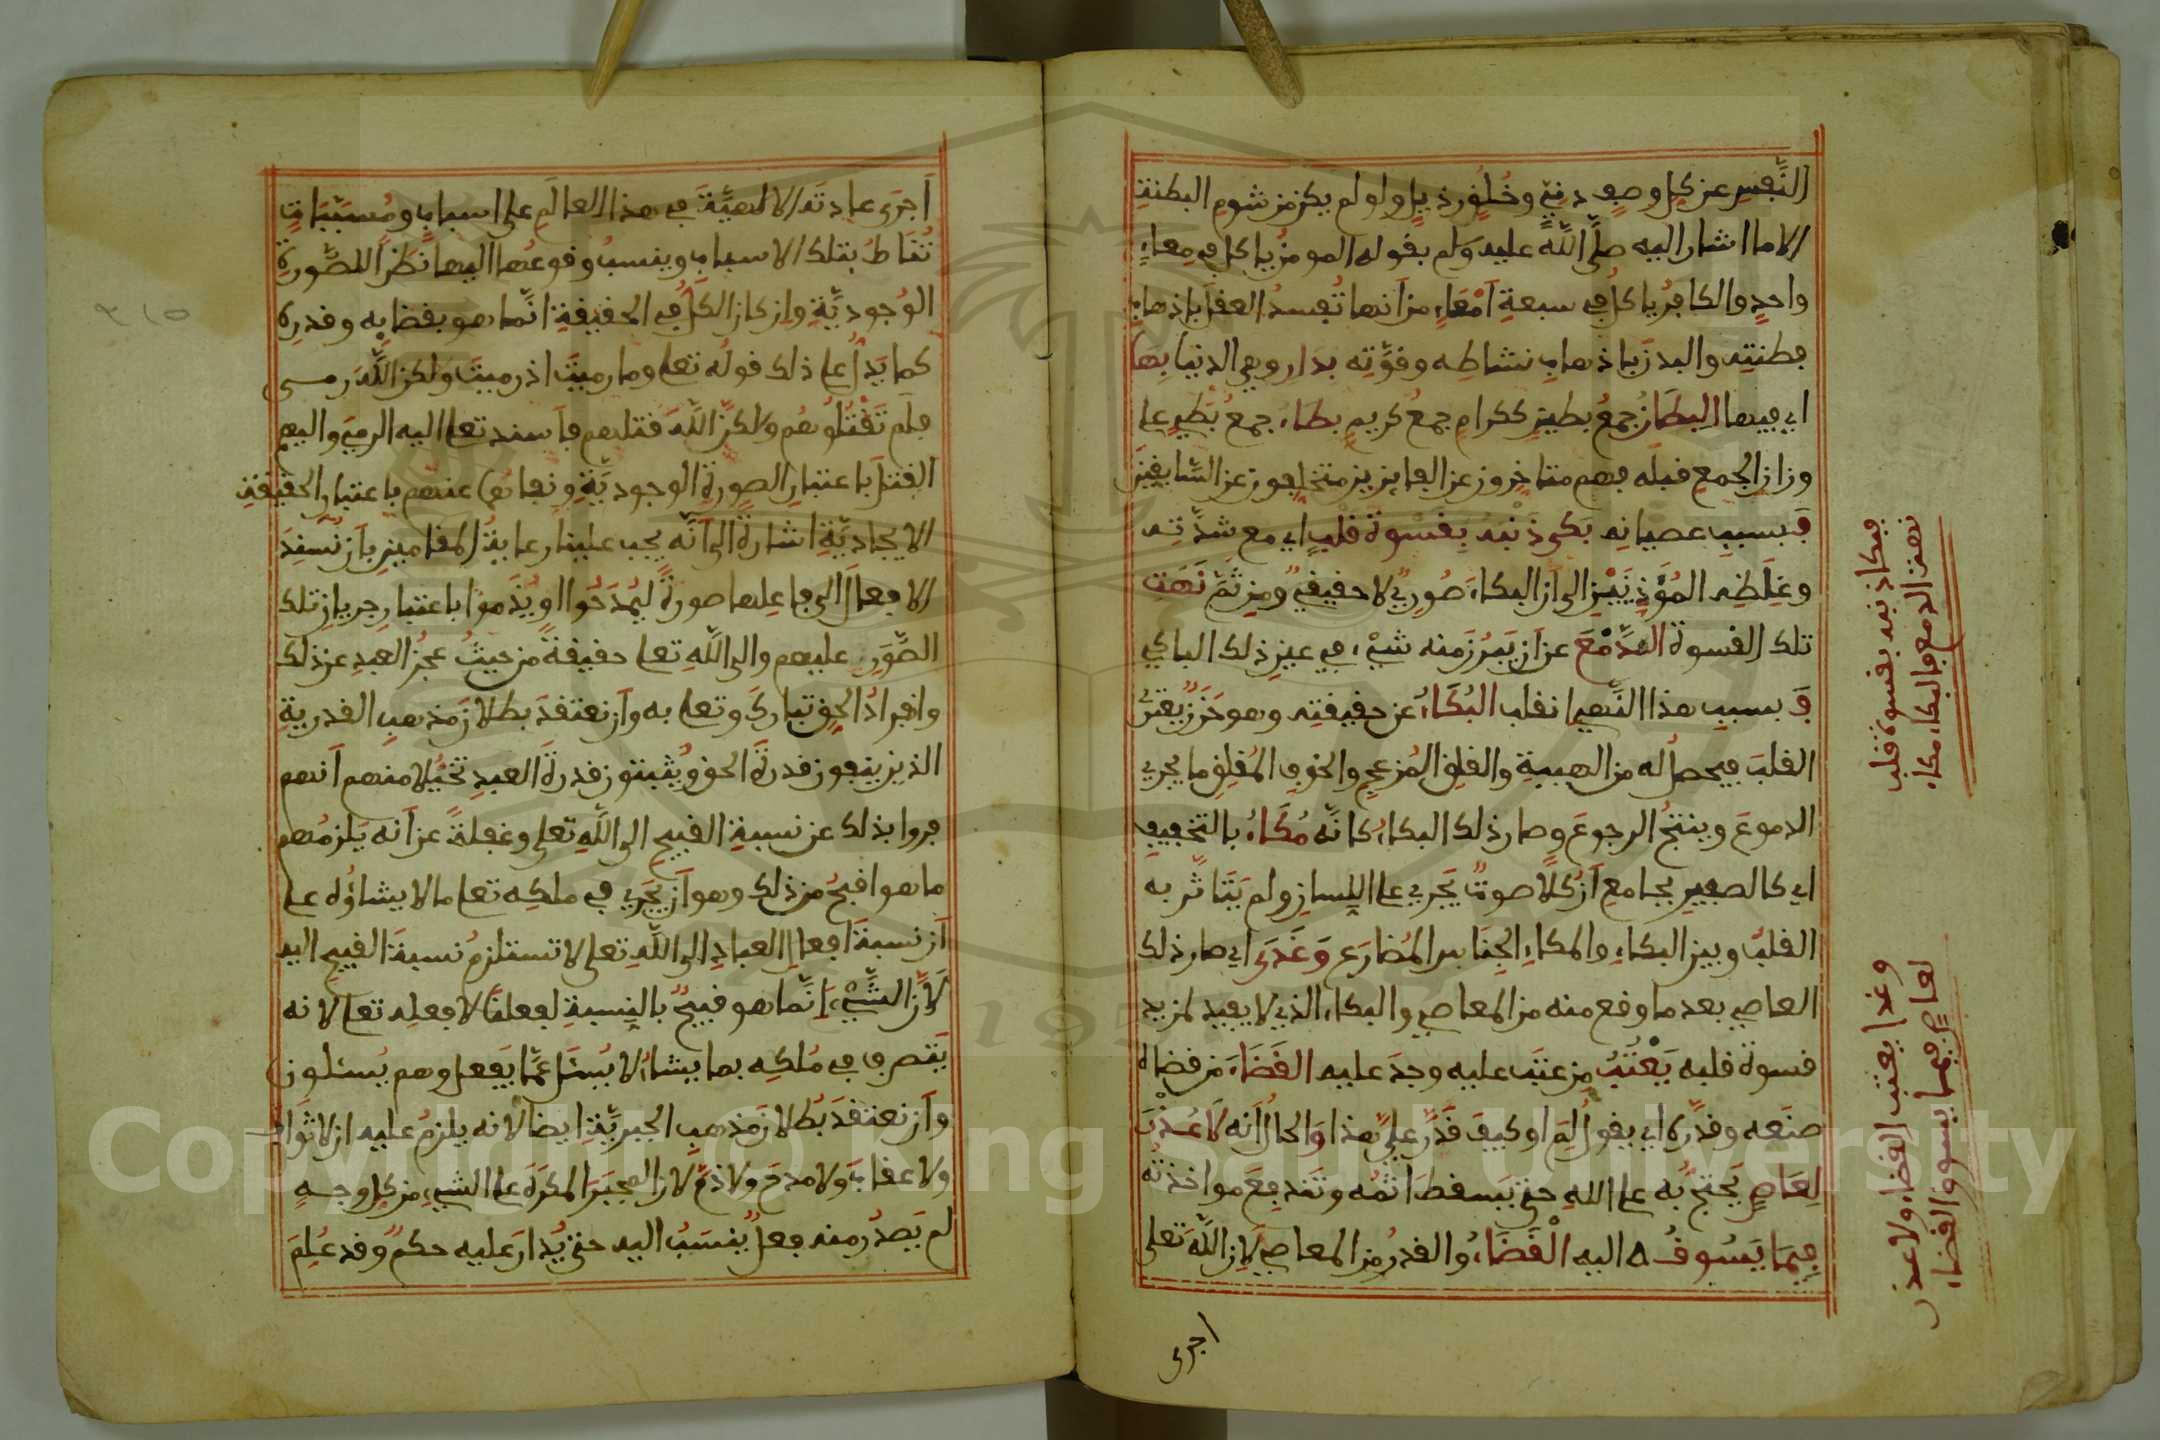 النَّفس عن كل وصف دنيّ وخُلُق رذيل ولو لم يكن من شوم البطنة
الا ما اشار اليه صلى الله عليه وسلم بقوله المومن ياكل في مِعاءٍ
واحدٍ والكافرُ ياكل في سبعةِ اَمْعَاءٍ من اَنها تُفسدُ العقلَ باذهابِ
فطنتِه والبدنَ باذهابِ نشاطِه وقوَّتِه بدار وهي الدنيا بِهَا
اي فيها البِطَانُ جمعُ بطينٍ ككرامٍ جمعُ كريمٍ بِطَاءٌ جمعُ بَطِيءٍ على
وزان الجمع قبله فهم متاخرون عن الفايزين متخلفون عن السَّابقين
فَبسببِ عصيانِه بَكى ذَنْبَه بِقَسْوَةِ قلبٍ اي مع شدَّتِه
وغِلَظِه المُؤْذِنَيْنِ الى ان البكاءَ صُورِيٌّ لا حقيقيٌّ ومن ثَمَّ نَهَتِ
تلك القسوة الدَّمْعَ عن ان يَبرُزَ منه شيْء في عينِ ذلك الباكي
فَ بسببِ هذا النَّهي انقلب البُكَاءُ عن حقيقتِه وهو حَزَنٌ يعتري
القلبَ فيحصلُ له من الهيبةِ والقلقِ المُزعجِ والخوفِ المُقلِقِ ما يجري
الدموعَ وينتجُ الرجوعَ وصار ذلك البكاءُ كانَّه مُكَاءُ بالتخفيفِ
اي كالصفير بجامعِ اَن كلًّا صوتٌ يَجري على اللِّسانِ ولم يَتَاثَّر به
القلبُ وبين البكاءِ والمكاءِ الجِنَاسِ المُضارَع وَغَدَى اي صار ذلك
العاصي بعد ما وقع منه من المعاصي والبكاءِ الذي لا يفيد لمزيد
قسوة قلبه يَعْتُبُ مِن عتَبَ عليه وجدَ عليه القَضَاءَ مَن قضاهُ
صنَعه وقدَّره اي يقولُ لِمَ او كيفَ قَدَّرَ عليَّ هذا وَالحالُ اَنه لَا عُذْرَ
لِعَاصٍ يَحتجُّ به على اللهِ حتى يَسقطَ اثمُه وتندفعَ مواخذتُه
فِيمَا يَسُوقُ ه اليه الْقَضَاءُ والقدرُ من المعاصي لاِن اللّهَ تعلى
اجرى
فبكا ذنبه بقسوة قلب
نهت الدمع فالبكاء مكاء
وغدا يعتب القضاء ولا عذر
لعاصٍ فيما يسوق القضاء
اَجرَى عادتَه الالهيَّةَ في هذا العالَمِ على اسبابٍ ومُسَبَّبَاتٍ
تُنَاطُ بتلك الاسبابِ وينسبُ وقوعُها اليها نَظَراً للصُّورة
الوُجوديَّةِ وان كان الكلُّ في الحقيقةِ انَّما هو بقضايِه وقدرِه
كما يَدُلُّ على ذلك قولُه تعلى وما رميتَ اذ رميتَ ولكن اللَّهَ رمى
فلم تَقْتُلُوهُم ولاكنَّ اللَّهَ قتلهم فاَسند تعلى اليه الرميَ واليهم
القتلَ باعتبارِ الصورةِ الوجوديَّةِ ونفاهُما عنهم باعتبارِ الحقيقةِ
الايجاديَّةِ اشارةً الى اَنَّه يجب علينا رعايةُ المقامينِ باَن نُسنِدَ
الافعالَ الى فاعلِها صورةً ليُمدَحُوا او يُذَموا باعتبارِ جريانِ تلك
الصُّوَرِ عليهم والى اللَّهِ تعلى حقيقةً من حيثُ عجزُ العبدِ عن ذلك
وانفرادُ الحقِ تبارك وتعلى به واَن نعتقدَ بطلانَ مذهبِ القدريةِ
الذين ينفون قدرةَ الحقِ ويُثبتون قدرةَ العبدِ تخيُّلا منهم اَنهم
فروا بذلك عن نسبةِ القبيحِ الى اللَّهِ تعلى وغفلةً عن اَنه يَلزمُهم
ما هو اقبحُ من ذلك وهو اَن يَجريَ في ملكِه تعلى ما لا يشاؤُه على
اَن نسبةَ افعالِ العبادِ الى اللَّهِ تعلى لا تستلزمُ نسبةَ القبيحِ اليه
لاَن الشَّيْءَ اِنَّما هو قبيحٌ بالنِّسبةِ لفعلنا لا لفعلِه تعلى لانه
يَتصرفُ في مُلكِه بما يشاءُ لا يُسئَلُ عمَّا يَفعلُ وهم يُسئلون
واَن نعتقدَ بُطلانَ مذهبِ الجبريَّةِ ايضا لانه يلزمُ عليه ان لا ثَوابَ
ولا عقابَ ولا مدحَ ولا ذمَّ لان المجبَرَ المكرَهَ على الشيْءِ من كلِ وجهٍ
لم يَصدُر منه فعلٌ يُنسَبُ اليه حتى يُدارَ عليه حكمٌ وقد عُلِمَ